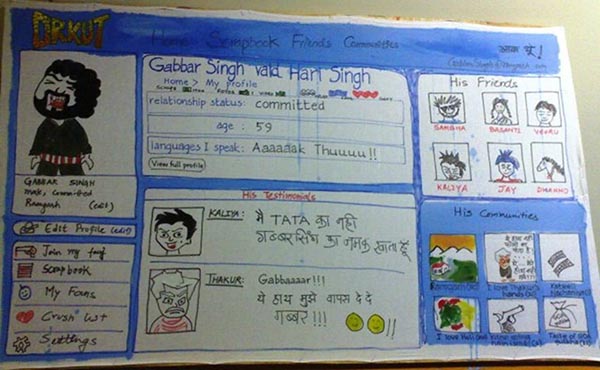 ORKUT
Home Scrapbook Friends Communities
Gabbar Singh Vald Hari Singh
Home > My profile
relationship status: committed
age: 59
languages I speak: Aaaaaak Thuuuu!!
View full profile
GABBAR SINGH
male, committed
Ramgarh (edit)
Edit Profile (edit)
Join my
Scrapbook
My Fans
Crush list
Settings
His Testimonials
KALIYA: मैं TATA का नही
गब्बर सिंघ का नमक खाता हूँ
THAKUR: Gabbaaaar!!!
ये हाथ मुझे वापस दे दे
गब्बर!!!
His Friends
SAMBHA BASANTI VEERU
KALIYA JAY DHANNO
His Communities
I love Thakur's
hands
I love